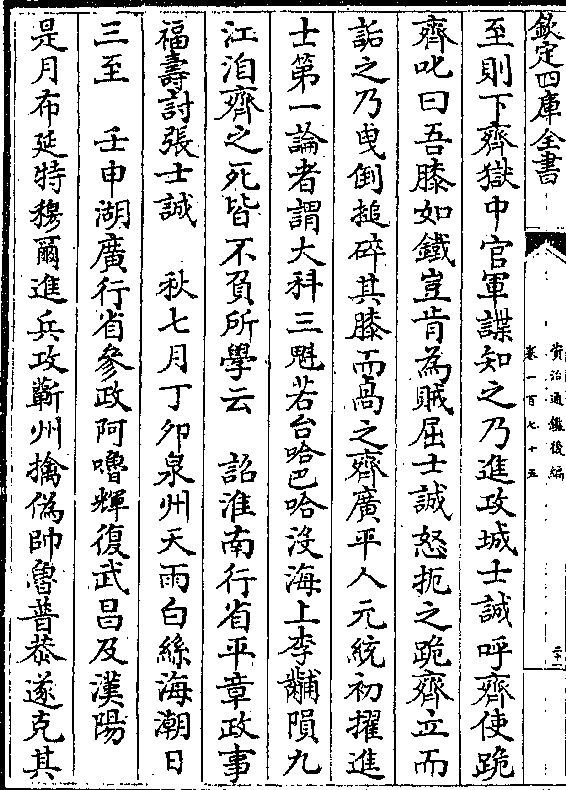 欽定四庫全書
資治通鑑後編
卷一百七十五
至則下齊獄中官軍諜知之乃進攻城士誠呼齊使跪
齊叱曰吾膝如鐵豈肯為賊屈士誠怒扼之跪齊立而
詬之乃曵倒搥碎其膝而咼之齊廣平人元統初擢進
士第一論者謂大科三魁若台哈巴哈沒海上李黼隕九
江洎齊之死皆不負所學云　詔淮南行省平章政事
福壽討張士誠　秋七月丁卯泉州天雨白絲海潮日
三至　壬申湖廣行省參政阿嚕輝復武昌及漢陽
是月布延特穆爾進兵攻蘄州擒偽帥魯普恭遂克其